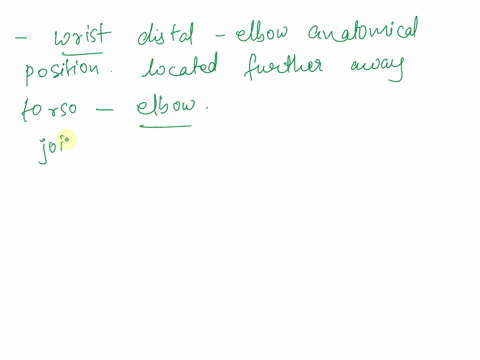 - wrist distal - elbow anatomical
position. located further away
torso - elbow.
joi